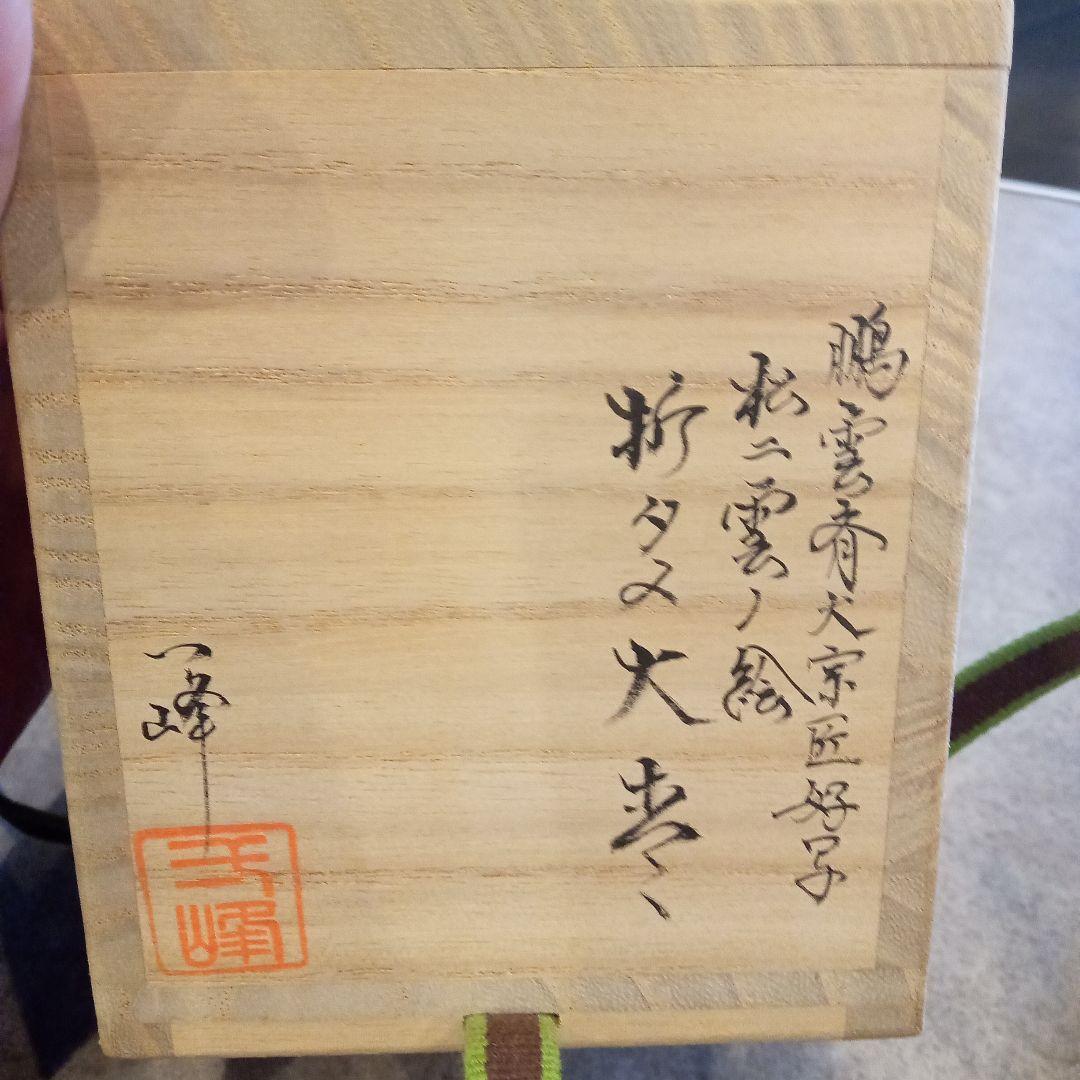 鵬雲斎大宗匠好写
松ニ雲ノ絵
折タメ大枣
一峰
弌峰